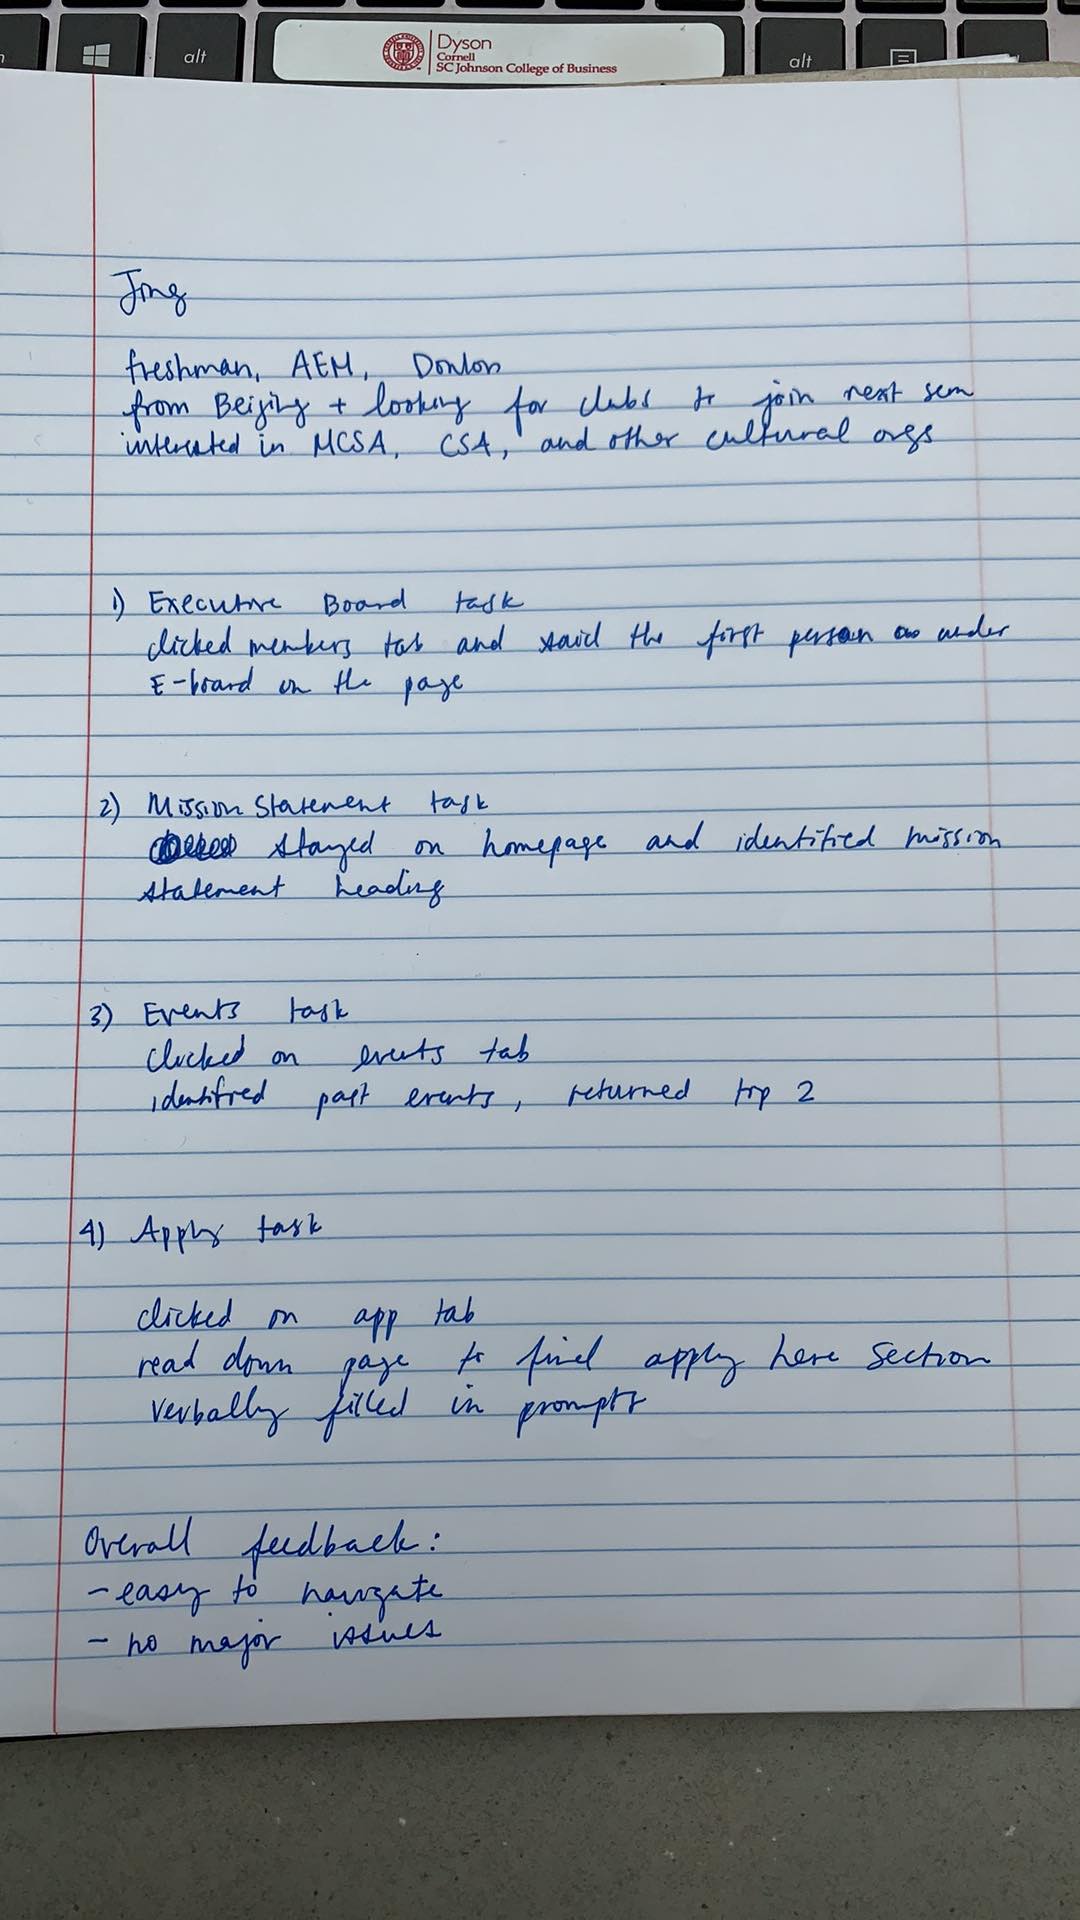 alt
Dyson
Cornell
SC Johnson College of Business
alt
Jing
freshman, AEM, Donlon
from Beijing + looking for clubs to join next sem
interested in MCSA, CSA, and other cultural orgs
1) Executive Board task
clicked members tab and said the first person under
E-board on the page
2) Mission Statement task
stayed on homepage and identified mission
statement heading
3) Events task
clicked on events tab
identified past events, returned top 2
4) Apply task
clicked on app tab
read down page to find apply here section
verbally filled in prompts
Overall feedback:
- easy to navigate
- no major issues